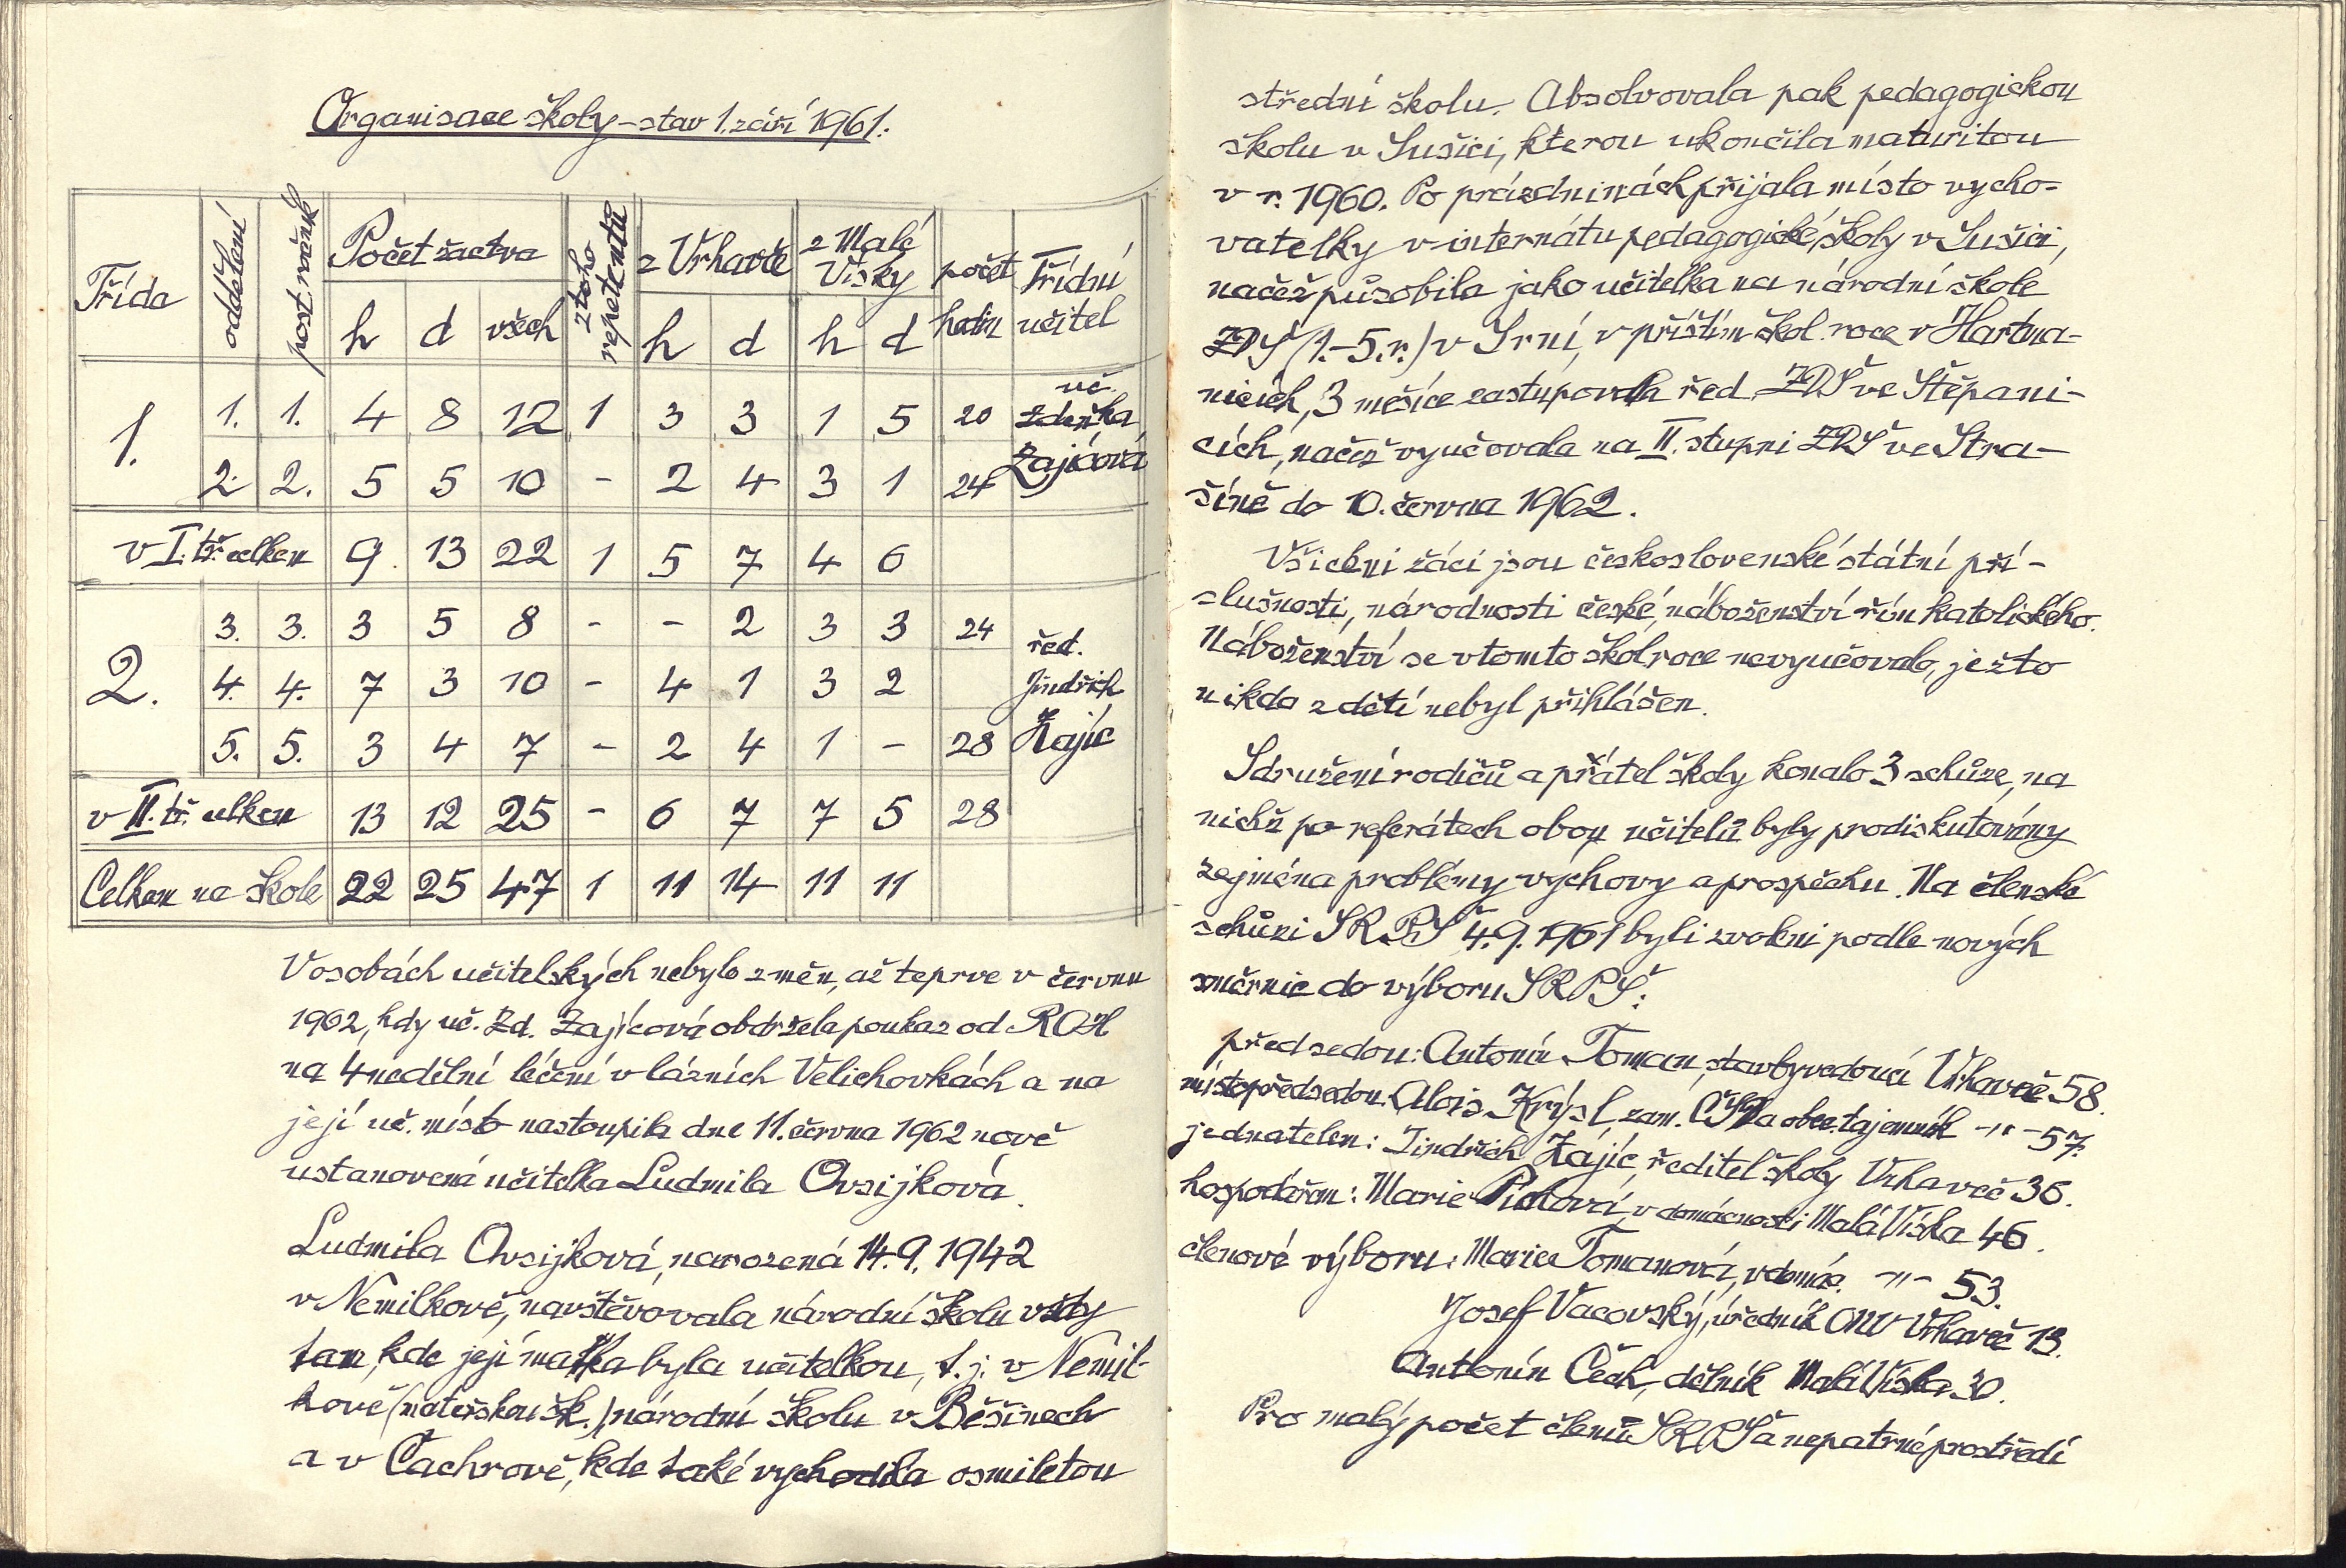 Organisace školy – stav 1. září 1961.
Třída oddělení post. ročník Počet žactva z toho repetentů z Vrhavče z Malé Vísky počet hodin Třídní učitel
h d všech h d h d
1. 1. 1. 4 8 12 1 3 3 1 5 20 uč. Zdeňka
2. 2. 5 5 10 - 2 4 3 1 24 Zajícová
v I. tř. celkem 9 13 22 1 5 7 4 6
2. 3. 3. 3 5 8 - - 2 3 3 24 řed.
4. 4. 7 3 10 - 4 1 3 2 Jindřich
5. 5. 3 4 7 - 2 4 1 - 28 Zajíc
v II. tř. celkem 13 12 25 - 6 7 7 5 28
Celkem na škole 22 25 47 1 11 14 11 11
V osobách učitelských nebylo změn, až teprve v červnu
1962, kdy uč. Zd. Zajícová obdržela poukaz od ROH
na 4 nedělní léčení v lázních Velichovkách a na
její uč. místo nastoupila dne 11. června 1962 nově
ustanovená učitelka Ludmila Ovsijková.
Ludmila Ovsijková, narozená 14. 9. 1942
v Nemilkově, navštěvovala národní školu vždy
tam, kde její matka byla učitelkou, t. j. v Nemil-
kově (mateřskou šk.) národní školu v Běšinech
a v Čachrově, kde také vychodila osmiletou
střední školu. Absolvovala pak pedagogickou
školu v Sušici, kterou ukončila maturitou
v r. 1960. Po prázdninách přijala místo vycho-
vatelky v internátu pedagogické školy v Sušici,
načež působila jako učitelka na národní škole
ZDŠ (1.-5. r.) v Srní, v příštím škol. roce v Hartma-
nicích, 3 měsíce zastupovala řed. ZDŠ ve Štěpani-
cích, načež vyučovala na II. stupni ZDŠ ve Stra-
šíně do 10. června 1962.
Všichni žáci jsou československé státní pří-
slušnosti, národnosti české, náboženství řím. katolického.
Náboženství se v tomto škol. roce nevyučovalo, ježto
nikdo z dětí nebyl přihlášen.
Sdružení rodičů a přátel školy konalo 3 schůze, na
nichž po referátech obou učitelů byly prodiskutovány
zejména problémy výchovy a prospěchu. Na členské
schůzi SRPŠ 4. 9. 1961 byli zvoleni podle nových
směrnic do výboru SRPŠ:
předsedou: Antonín Toman, stavbyvedoucí Vrhaveč 58.
místopředsedou: Alois Krýsl, zam. ČSD a obec. tajemník -"- 57.
jednatelem: Jindřich Zajíc, ředitel školy Vrhaveč 36.
hospodářem: Marie Pichová, v domácnosti Malá Víska 46.
členové výboru: Marie Tomanová, v domác. -"- 53.
Josef Vacovský, úředník ONV Vrhaveč 13.
Antonín Čech, dělník Malá Víska 30.
Pro malý počet členů SRPŠ a nepatrné prostředí